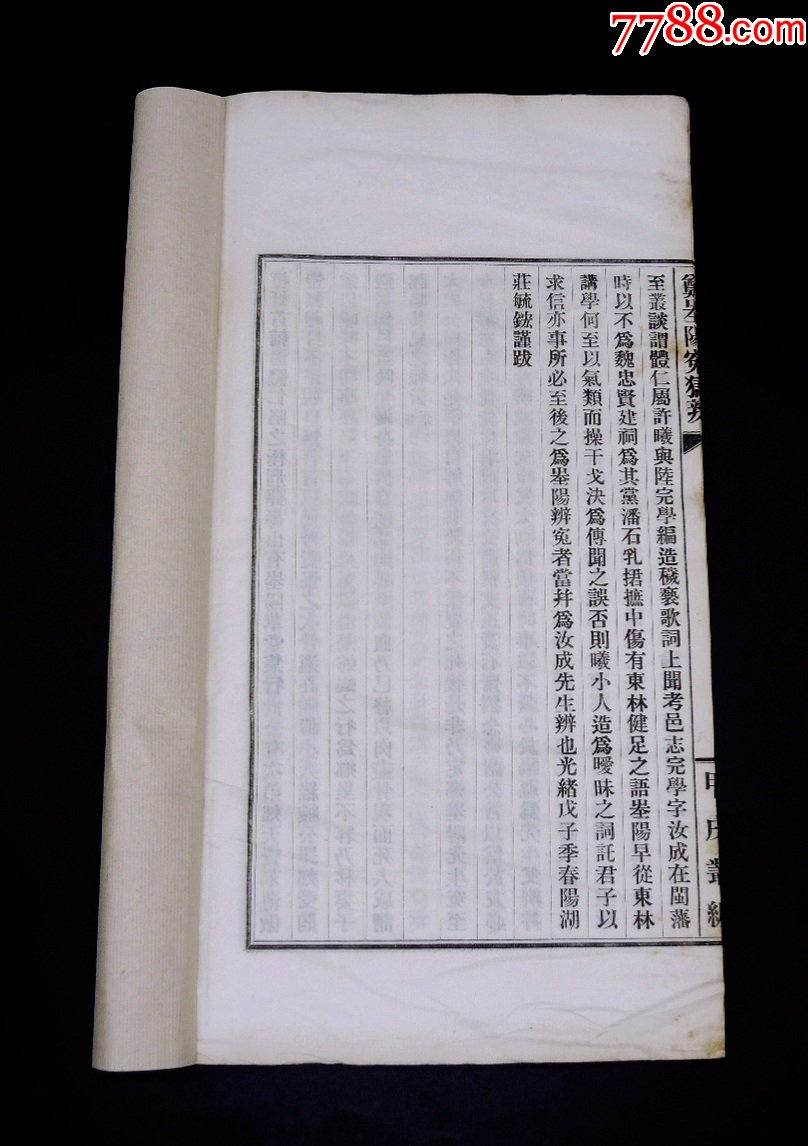 7788.com
鄭峚陽寃獄辨
至叢談謂體仁屬許曦與陸完學編造穢褻歌詞上聞考邑志完學字汝成在閩藩
時以不爲魏忠賢建祠爲其黨潘石乳捃摭中傷有東林健足之語峚陽早從東林
講學何至以氣類而操干戈決爲傳聞之誤否則曦小人造爲曖昧之詞託君子以
求信亦事所必至後之爲峚陽辨寃者當并爲汝成先生辨也光緒戊子季春陽湖
莊毓鋐謹跋
甲戌叢編